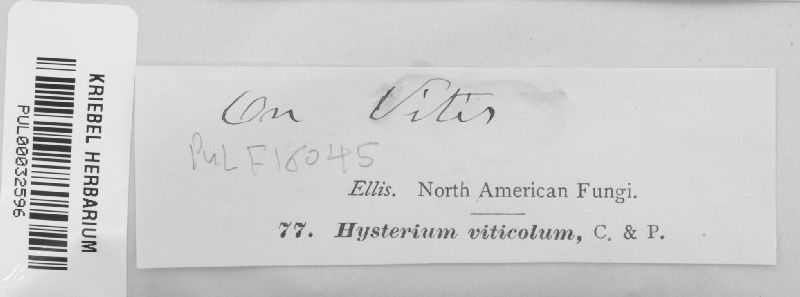 KRIEBEL HERBARIUM
PUL00032596
On Vitis
PUL F18045
Ellis. North American Fungi.
77. Hysterium viticolum, C. & P.